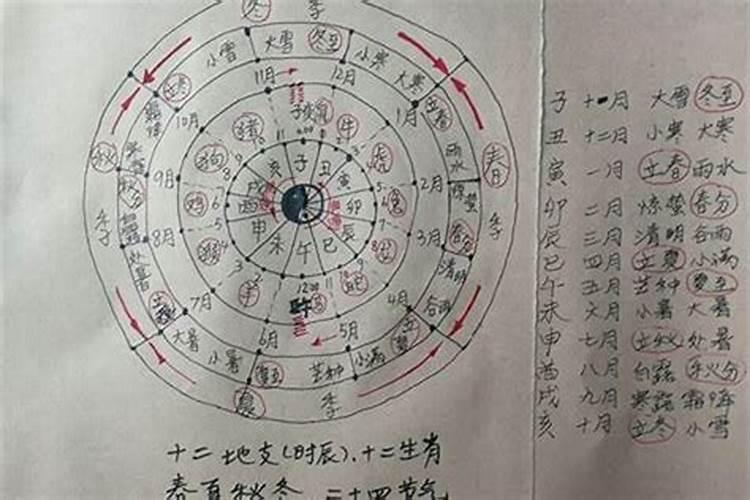 冬 季
小雪 大雪 冬至 小寒 大寒
立冬 11月 12月 1月 立春
10月 子 鼠 牛 雨水
猪 虎
秋 狗 亥 子 丑 春
9月 戌 寅 2月 惊蛰
秋分 鸡 酉 卯 兔
季 申 辰 3月 春分 季
8月 猴 未 午 巳 龙 清明
处暑 羊 12:00 蛇 谷雨
立秋 7月 午 马 4月
大暑 6月 5月 立夏
小暑 夏至 芒种 小满
夏 季
子 十一月 大雪 冬至
丑 十二月 小寒 大寒
寅 一月 立春 雨水
卯 二月 惊蛰 春分
辰 三月 清明 谷雨
巳 四月 立夏 小满
午 五月 芒种 夏至
未 六月 小暑 大暑
申 七月 立秋 处暑
酉 八月 白露 秋分
戌 九月 寒露 霜降
亥 十月 立冬 小雪
十二地支(时辰)、十二生肖
春夏秋冬 二十四节气